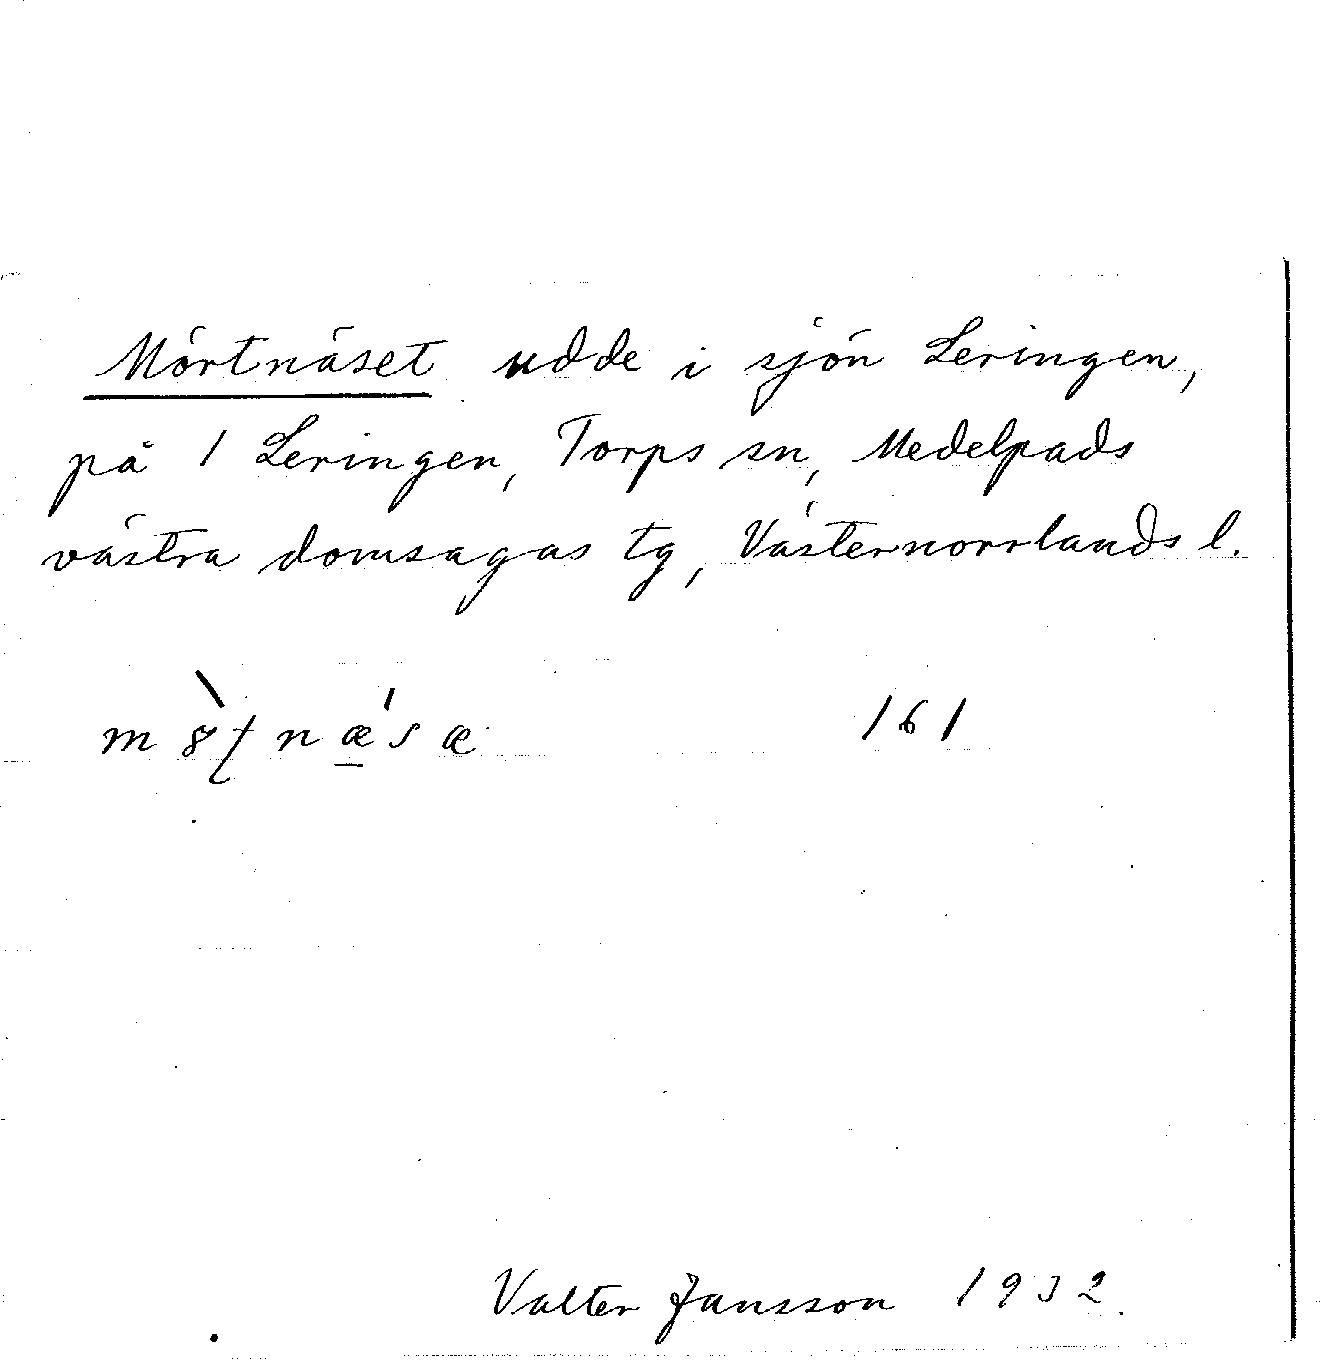 Mörtnäset udde i sjön Leringen,
på 1 Leringen, Torps sn, Medelpads
västra domsagas tg, Västernorrlands l.
161
Valter Jansson 1932.